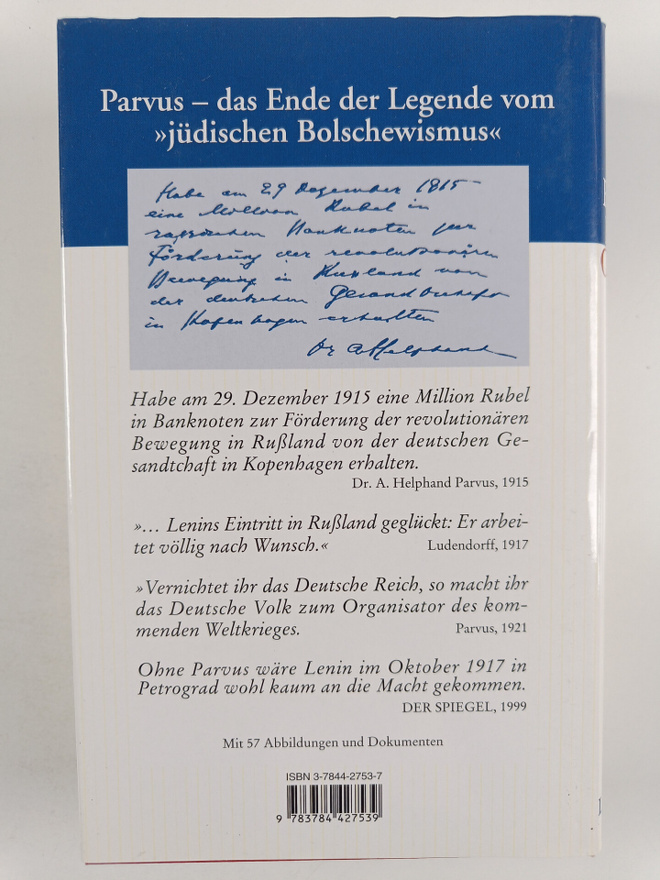 Parvus – das Ende der Legende vom
»jüdischen Bolschewismus«
Habe am 29 Dezember 1915
eine Million Rubel in
russischen Banknoten zur
Förderung der revolutionären
Bewegung in Russland von
der deutschen Gesandtschaft
in Kopenhagen erhalten
Dr AHelphand
Habe am 29. Dezember 1915 eine Million Rubel
in Banknoten zur Förderung der revolutionären
Bewegung in Rußland von der deutschen Ge-
sandtchaft in Kopenhagen erhalten.
Dr. A. Helphand Parvus, 1915
»... Lenins Eintritt in Rußland geglückt: Er arbei-
tet völlig nach Wunsch.« Ludendorff, 1917
»Vernichtet ihr das Deutsche Reich, so macht ihr
das Deutsche Volk zum Organisator des kom-
menden Weltkrieges. Parvus, 1921
Ohne Parvus wäre Lenin im Oktober 1917 in
Petrograd wohl kaum an die Macht gekommen.
DER SPIEGEL, 1999
Mit 57 Abbildungen und Dokumenten
ISBN 3-7844-2753-7
9 783784 427539